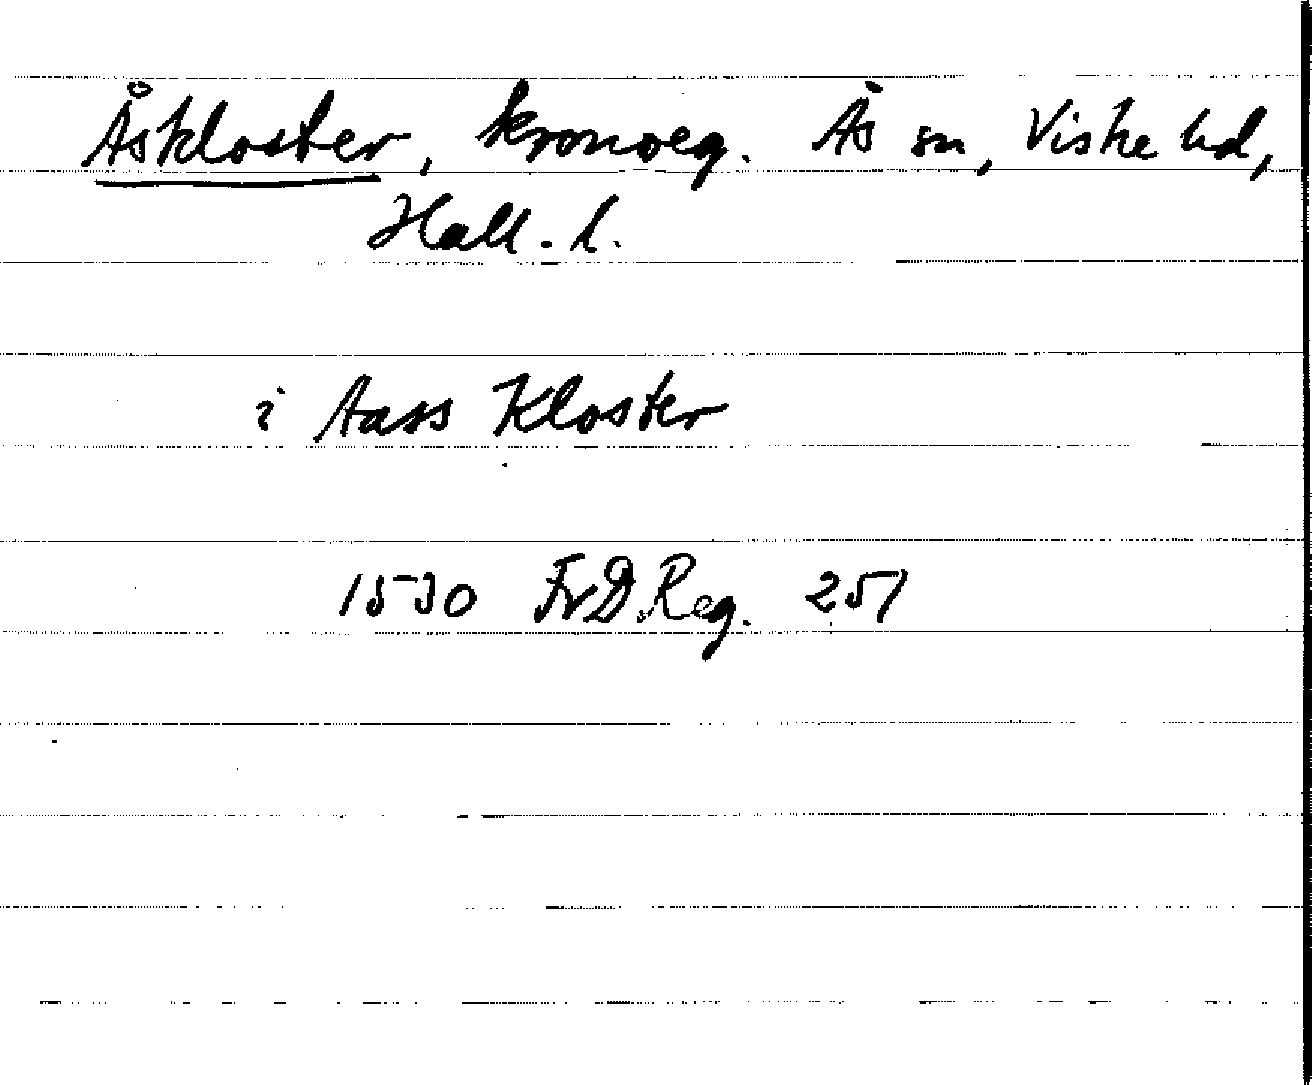 Åskloster, kronoeg. Ås sn, Viske hd,
Hall. l.
i Aass Kloster
1530 FrDReg. 251